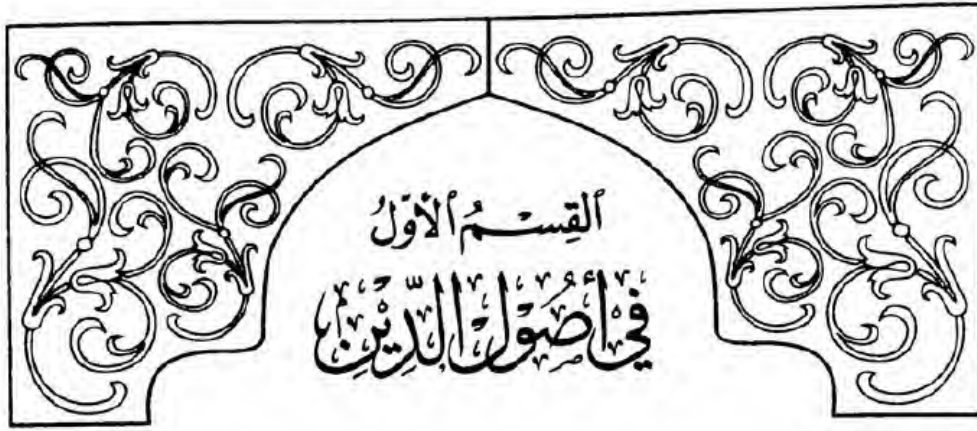 ٱلقِسْمُ ٱلأَوَّلُ
فِي أُصُولِ الدِّيْنِ